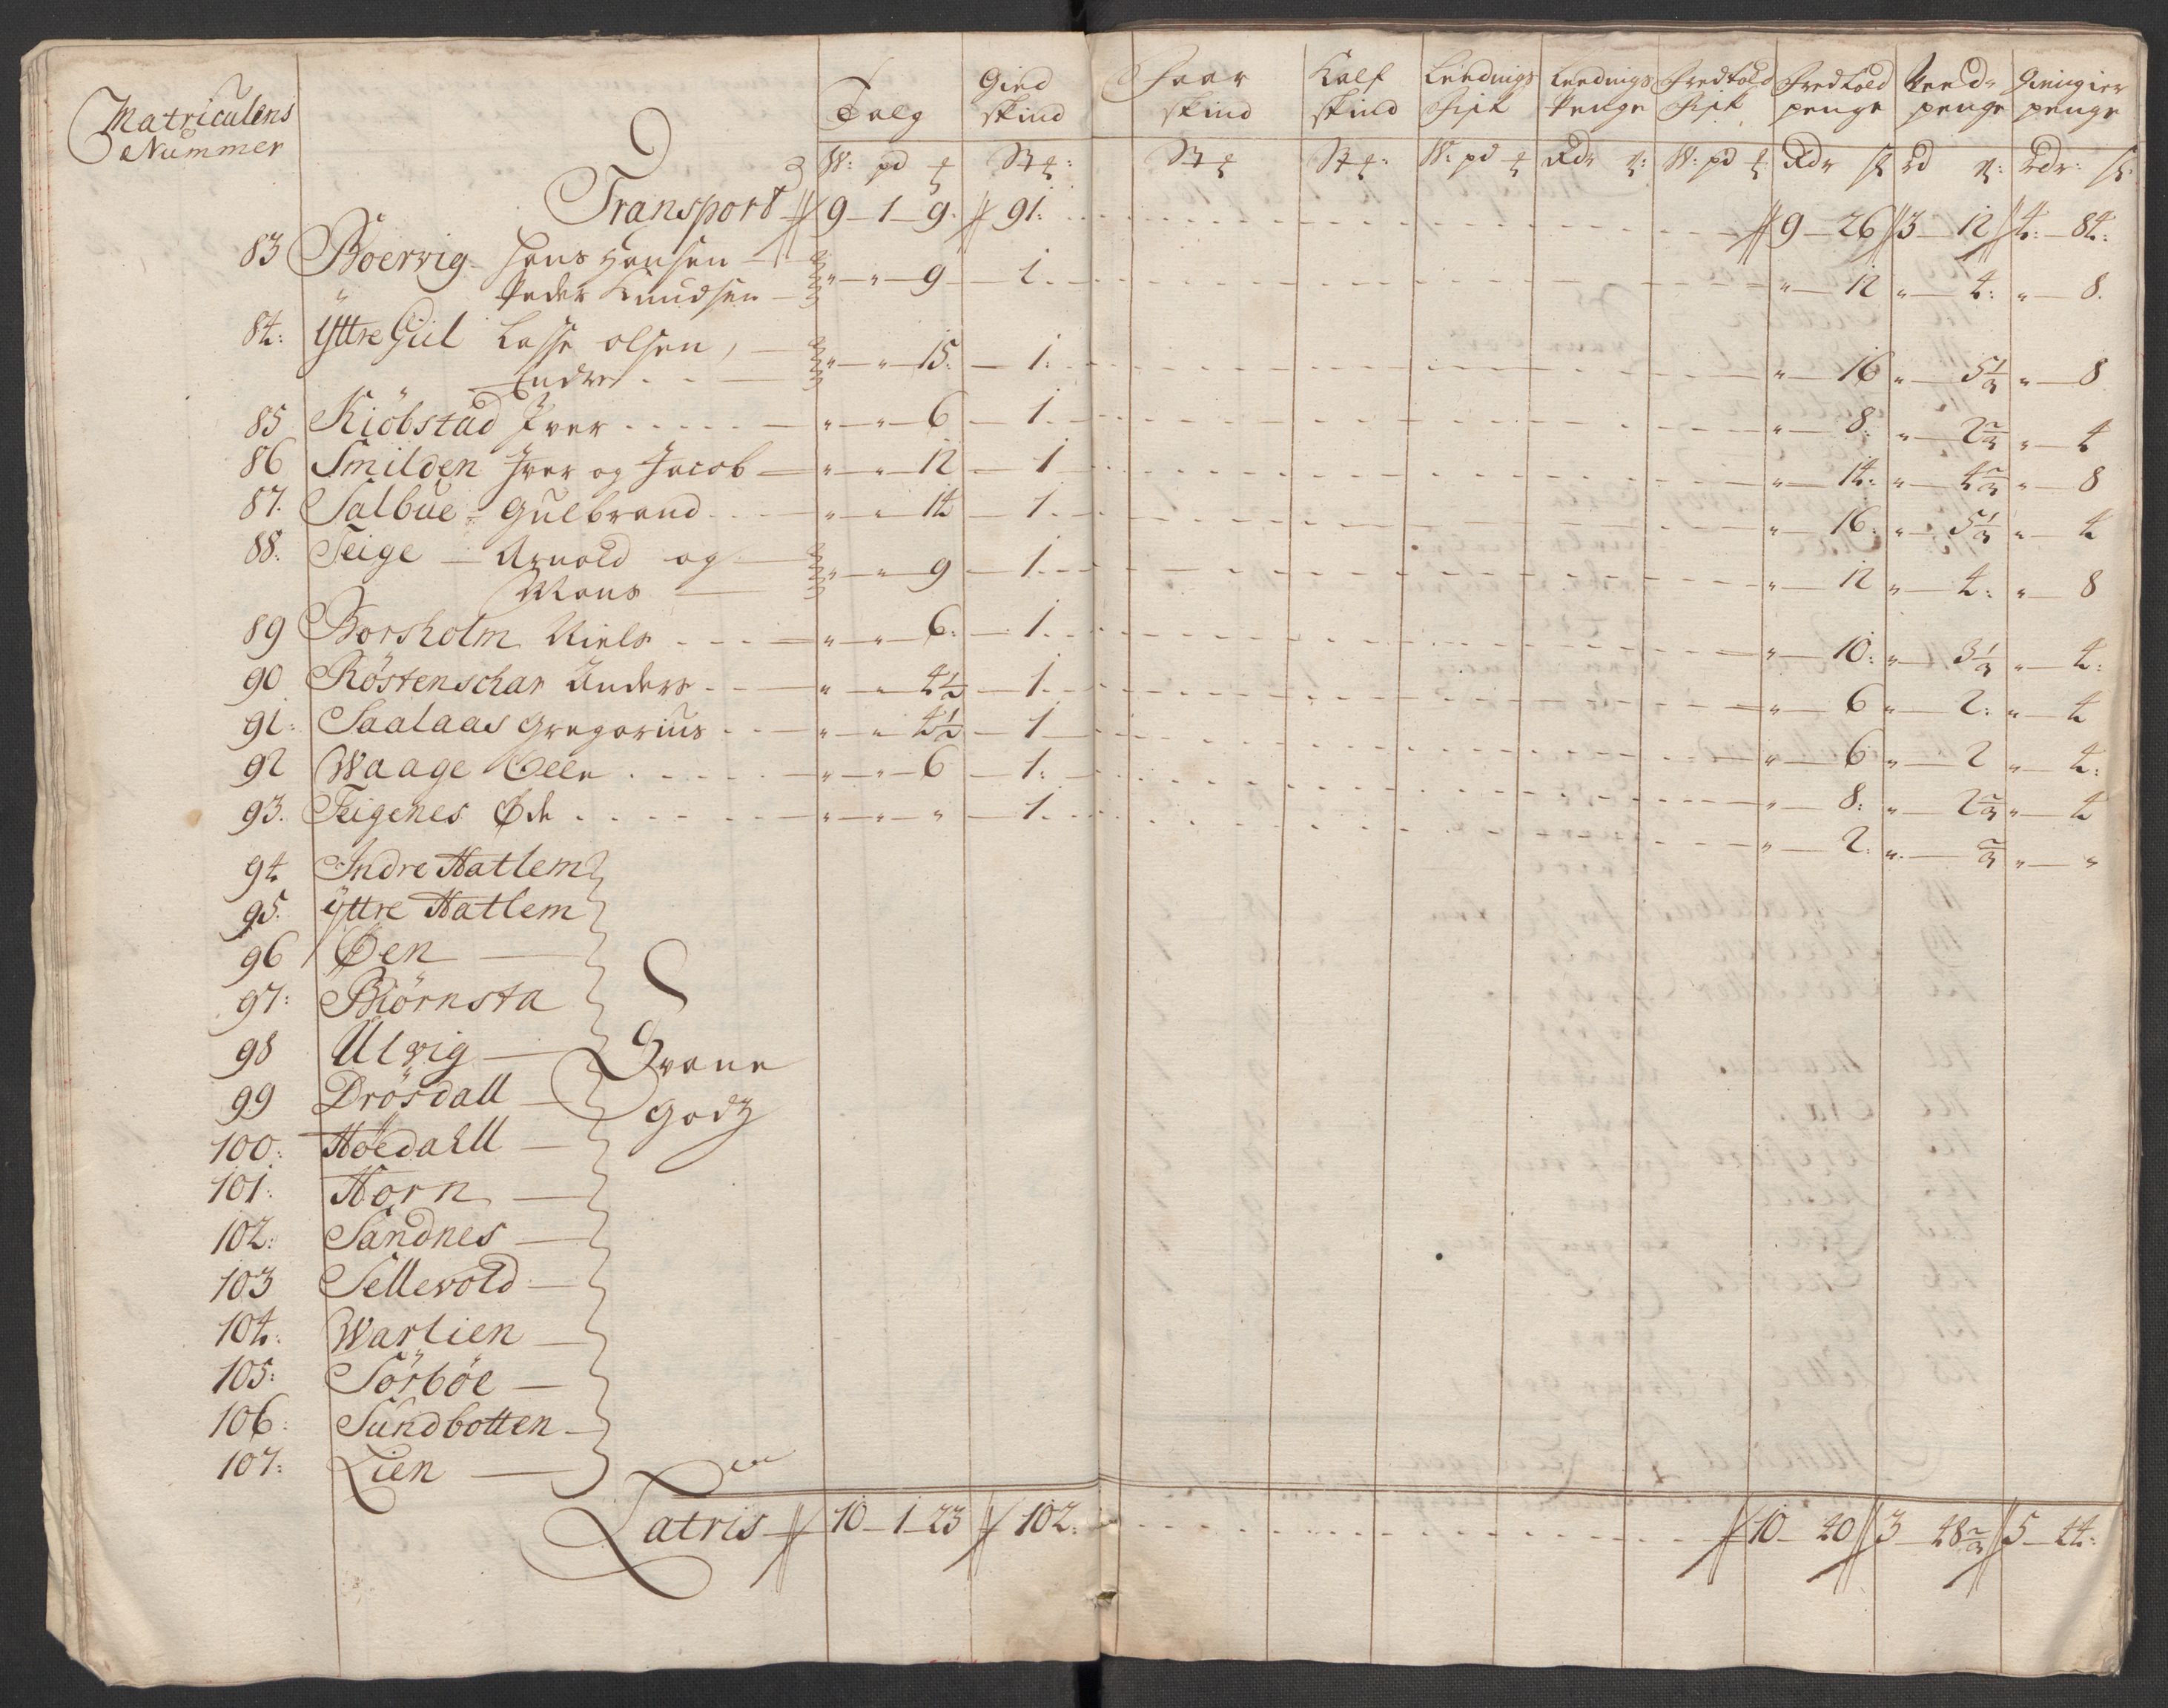 Matriculens Nummer | Talg | Gied skind | Faar skind | Kalf skind | Leedings Fisk | Leedings Penge | Fredtold Fisk | Fredtold penge | penge | penge
W: pd | Rdr | W: pd | Rdr | rd | rdr:
Transport 9 – 1 – 9. 91: 9 – 26 3 – 12 4: – 84:
83 Boervig – Hans Hansen
Peder Knudsen " – " – 9 – 1 " – 12 " – 4: " – 8.
84: Yttre Giil Lasse olsen,
Endre " – " – 15: – 1: " – 16 " – 5 1/3 " – 8
85 Kiöbstad Iver " – " – 6 – 1 " – 8: " – 2 2/3 " – 4
86 Smilden Iver og Jacob – " – " – 12 – 1 " – 14: " – 4 2/3 " – 8
87. Salbue – Gulbrand " – " – 14 – 1 " – 16: " – 5 1/3 " – 4
88. Teige – Arnold og
Mons " – " – 9 – 1 " – 12 " – 4: " – 8
89 Borsholm Niels " – " – 6: – 1 " – 10: " – 3 1/3 " – 4:
90 Röstenschar Anders " – " – 4 1/2 – 1 " – 6 " – 2: " – 4
91: Saalaas Gregorius " – " – 4 1/2 – 1 " – 6 " – 2 " – 4:
92 Waage Ole " – " – 6 – 1: " – 8: " – 2 2/3 " – 4
93. Teigenes Øde " – " – " – 1 " – 2: " – 2/3 " – "
94 Indre Hatlem
95. Yttre Hatlem
96 Øen
97: Biörnsta
98 Ulvig
Svane
99 Drösdall
Godz
100: Höedahll
101: Horn
102: Sandnes
103 Sellevold
104: Warlien
105: Sörböe
106: Sundbotten
107: Lien
Latris 10 – 1 – 23 102: 10 – 40 3 – 48 2/3 5 – 44: